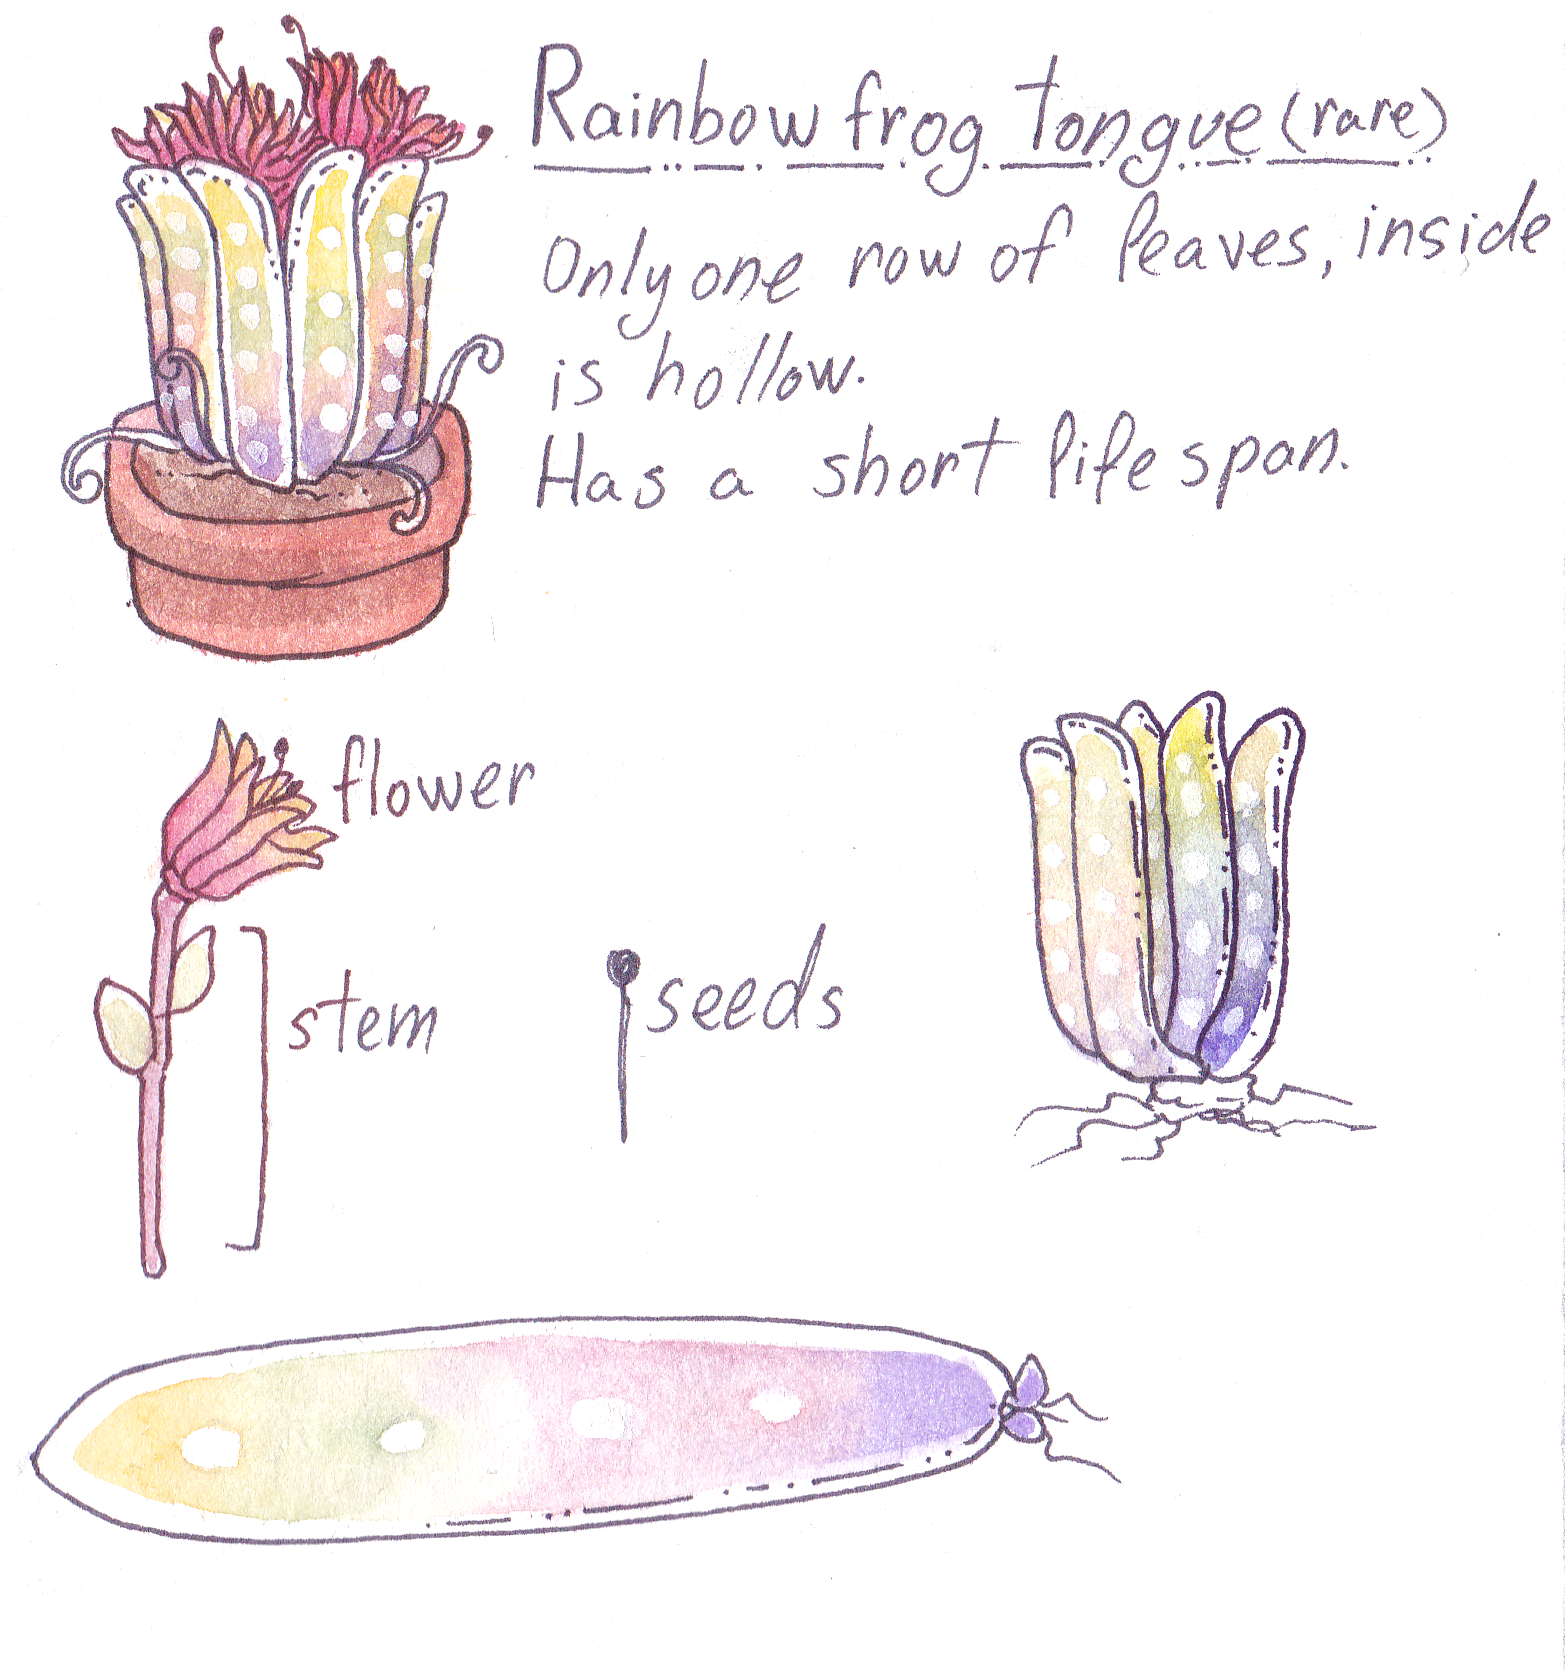 Rainbow frog tongue (rare)
Only one row of leaves, inside
is hollow.
Has a short life span.
flower
stem
seeds